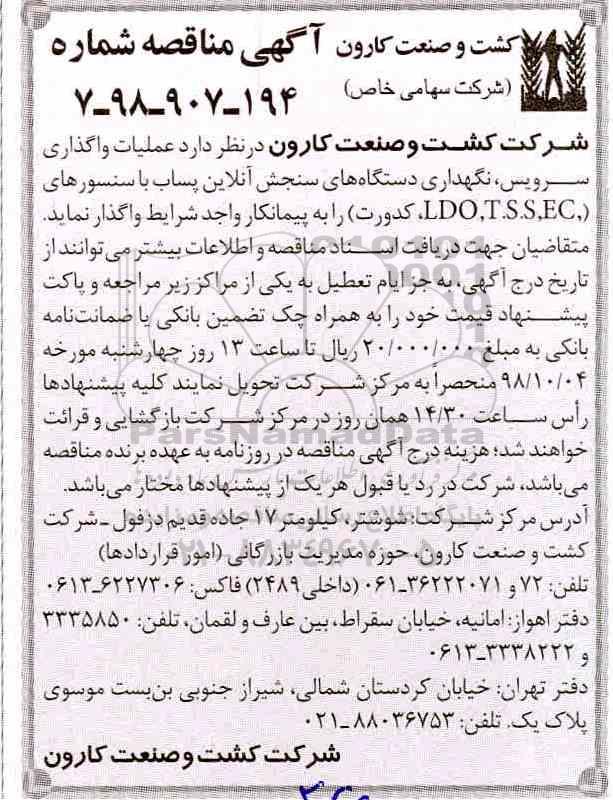 کشت و صنعت کارون آگهی مناقصه شماره
(شرکت سهامی خاص) ۷ـ۹۸ـ۹۰۷ـ۱۹۴
شرکت کشت و صنعت کارون درنظر دارد عملیات واگذاری
سرویس، نگهداری دستگاه‌های سنجش آنلاین پساب با سنسورهای
(LDO,T.S.S,EC,، کدورت) را به پیمانکار واجد شرایط واگذار نماید.
متقاضیان جهت دریافت اسناد مناقصه و اطلاعات بیشتر می‌توانند از
تاریخ درج آگهی، به جز ایام تعطیل به یکی از مراکز زیر مراجعه و پاکت
پیشنهاد قیمت خود را به همراه چک تضمین بانکی یا ضمانت‌نامه
بانکی به مبلغ ۲۰/۰۰۰/۰۰۰ ریال تا ساعت ۱۳ روز چهارشنبه مورخه
۹۸/۱۰/۰۴ منحصراً به مرکز شرکت تحویل نمایند کلیه پیشنهادها
رأس ساعت ۱۴/۳۰ همان روز در مرکز شرکت بازگشایی و قرائت
خواهند شد؛ هزینه درج آگهی مناقصه در روزنامه به عهده برنده مناقصه
می‌باشد، شرکت در رد یا قبول هر یک از پیشنهادها مختار می‌باشد.
آدرس مرکز شرکت: شوشتر، کیلومتر ۱۷ جاده قدیم دزفول ـ شرکت
کشت و صنعت کارون، حوزه مدیریت بازرگانی (امور قراردادها)
تلفن: ۷۲ و ۳۶۲۲۲۰۷۱ـ۰۶۱ (داخلی ۲۴۸۹) فاکس: ۶۲۲۷۳۰۶ـ۰۶۱۳
دفتر اهواز: امانیه، خیابان سقراط، بین عارف و لقمان، تلفن: ۳۳۳۵۸۵۰
و ۳۳۳۸۲۲۲ـ۰۶۱۳
دفتر تهران: خیابان کردستان شمالی، شیراز جنوبی بن‌بست موسوی
پلاک یک. تلفن: ۸۸۰۳۶۷۵۳ـ۰۲۱
شرکت کشت و صنعت کارون
ParsNamadData